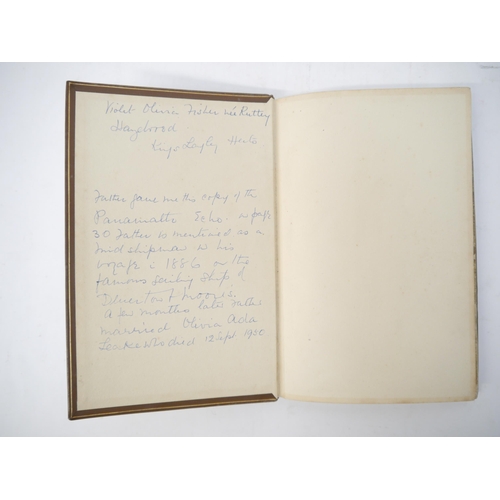 Violet Olivia Fisher née Ruttey
Haydwood
Kings Langley Herts
Father gave me this copy of the
Parramatta Echo. on page
30 Father is mentioned as a
midshipman in his
voyage in 1886 on the
famous sailing ship of
Moore's.
A few months later Father
married Olivia Ada
Leake who died 12 Sept. 1950